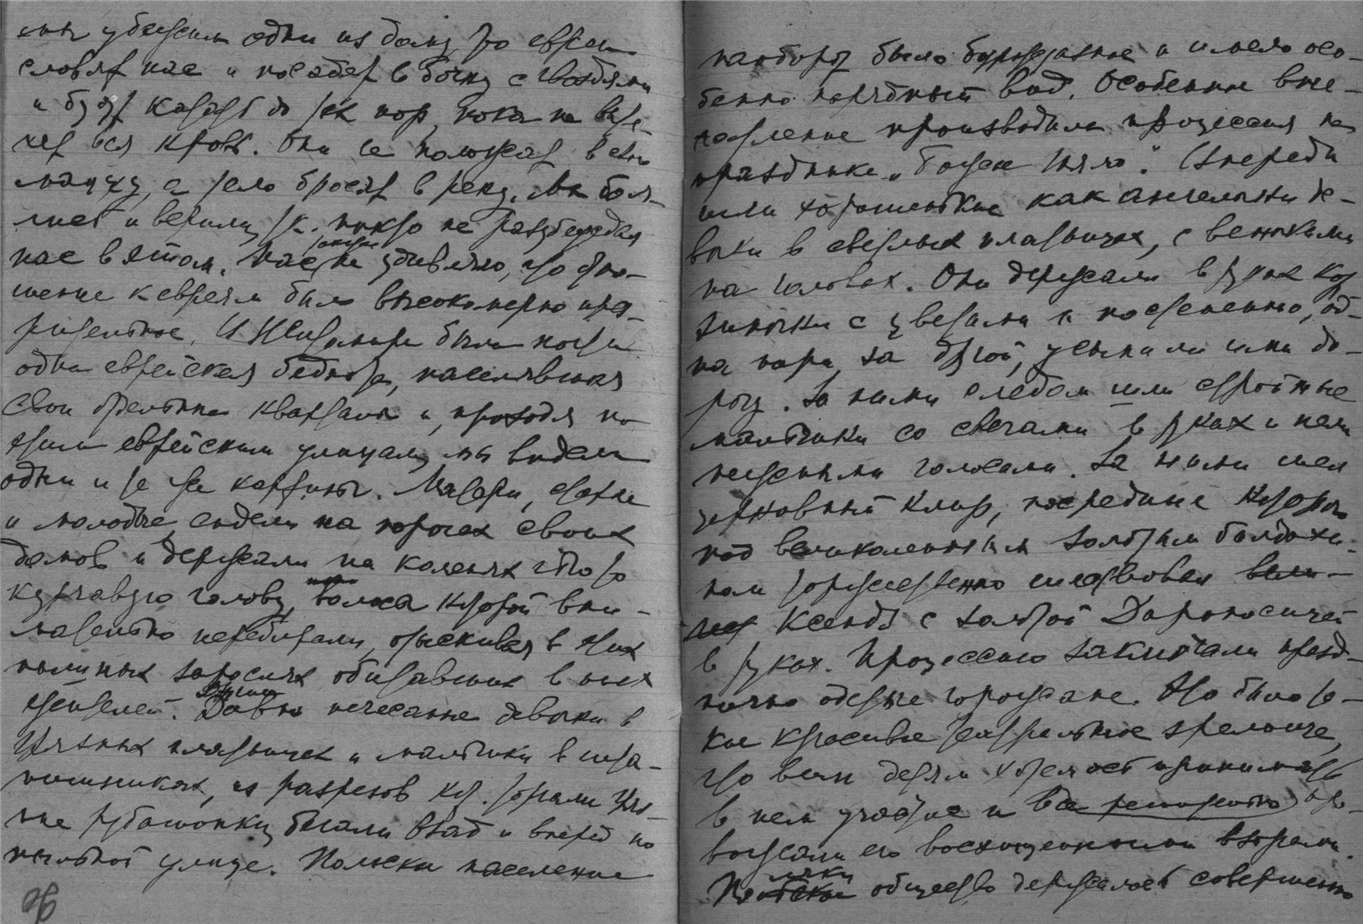 мы убежим одни из дому, то евреи
словят нас и посадят в бочку с гвоздями
и будут катать до тех пор, пока не выте-
чет вся кровь. Они ее положат в свою
мацу, а тело бросят в реку. Мы боя-
лись и верили, т.к. никто не разубеждал
нас в этом. Нас не удивляло, что отно-
шение к евреям было высокомерно през-
рительное. В Житомире была
одна еврейская беднота, населявшая
свои отдельные кварталы и, проходя по
этим еврейским улицам, мы видели
одни и те же картины. Матери, старые
и молодые сидели на порогах своих
домов и держали на коленях чью то
курчавую голову, волоса которой вни-
мательно перебирали, отыскивая в этих
пышных зарослях обитавших в них
жителей. Давно нечесанные девочки в
грязных платьицах и мальчики в шта-
нишках, из разрезов кот. торчали гряз-
ные рубашонки, бегали взад и вперед по
пыльной улице. Польское население
наоборот было буржуазное и имело осо-
бенно нарядный вид. Особенное впе-
чатление производила процессия на
празднике "Божьего Тела". Впереди
шли хорошенькие как ангелочки де-
вочки в светлых платьицах, с веночками
на головах. Они держали в руках кор-
зиночки с цветами и постепенно, од-
на пара за другой, усыпали ими до-
рогу. За ними следом шли стройные
мальчики со свечами в руках и пели
нежными голосами. За ними шел
церковный клир, посредине которого
под великолепным золотым балдахи-
ном торжественно шествовал
ксендз с золотой Дароносицей
в руках. Процессию заключали празд-
нично одетые горожане. Это было та-
кое красивое театральное зрелище,
что всем детям хотелось принимать
в нем участие и все решительно про-
вожали его восхищенными взорами.
общество держалось совершенно